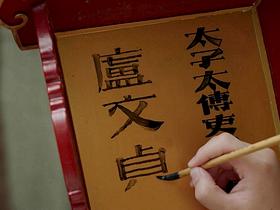 太子太傅吏
盧文貞